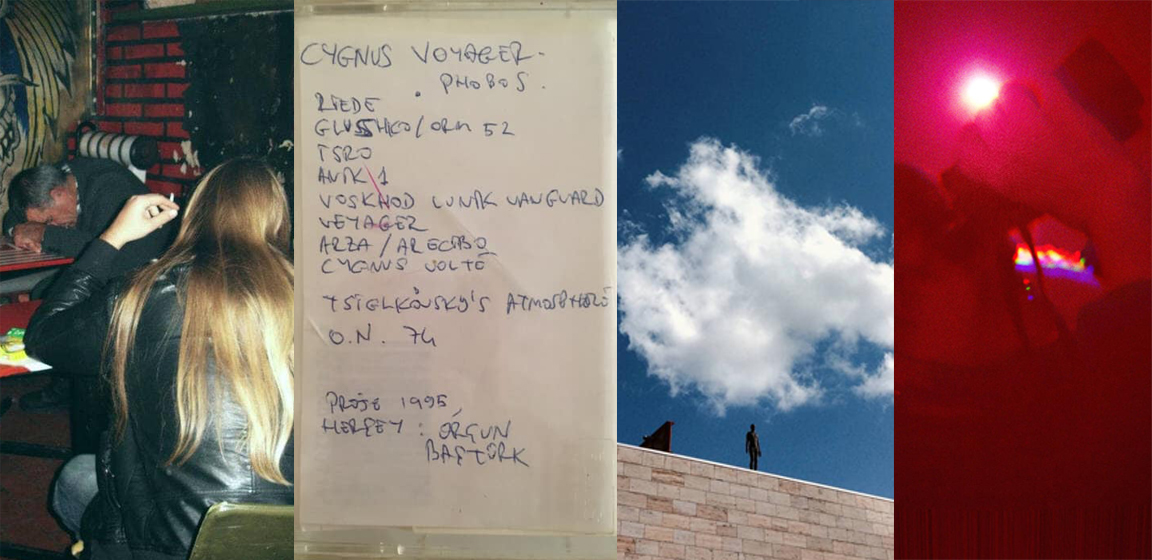 CYGNUS VOYAGER-
. PHOBOS.
RIEDE
GLUSHKO/ORM 52
TSRO
ANIK 1
VOSKHOD LUNIK VANGUARD
VEYAGER
ARZA/ARECIBO
CYGNUS VOLTO
TSIELKOVSKY'S ATMOSPHERE
O.N. 74
PROJE 1995,
HERŞEY : ORGUN
BAŞTÜRK